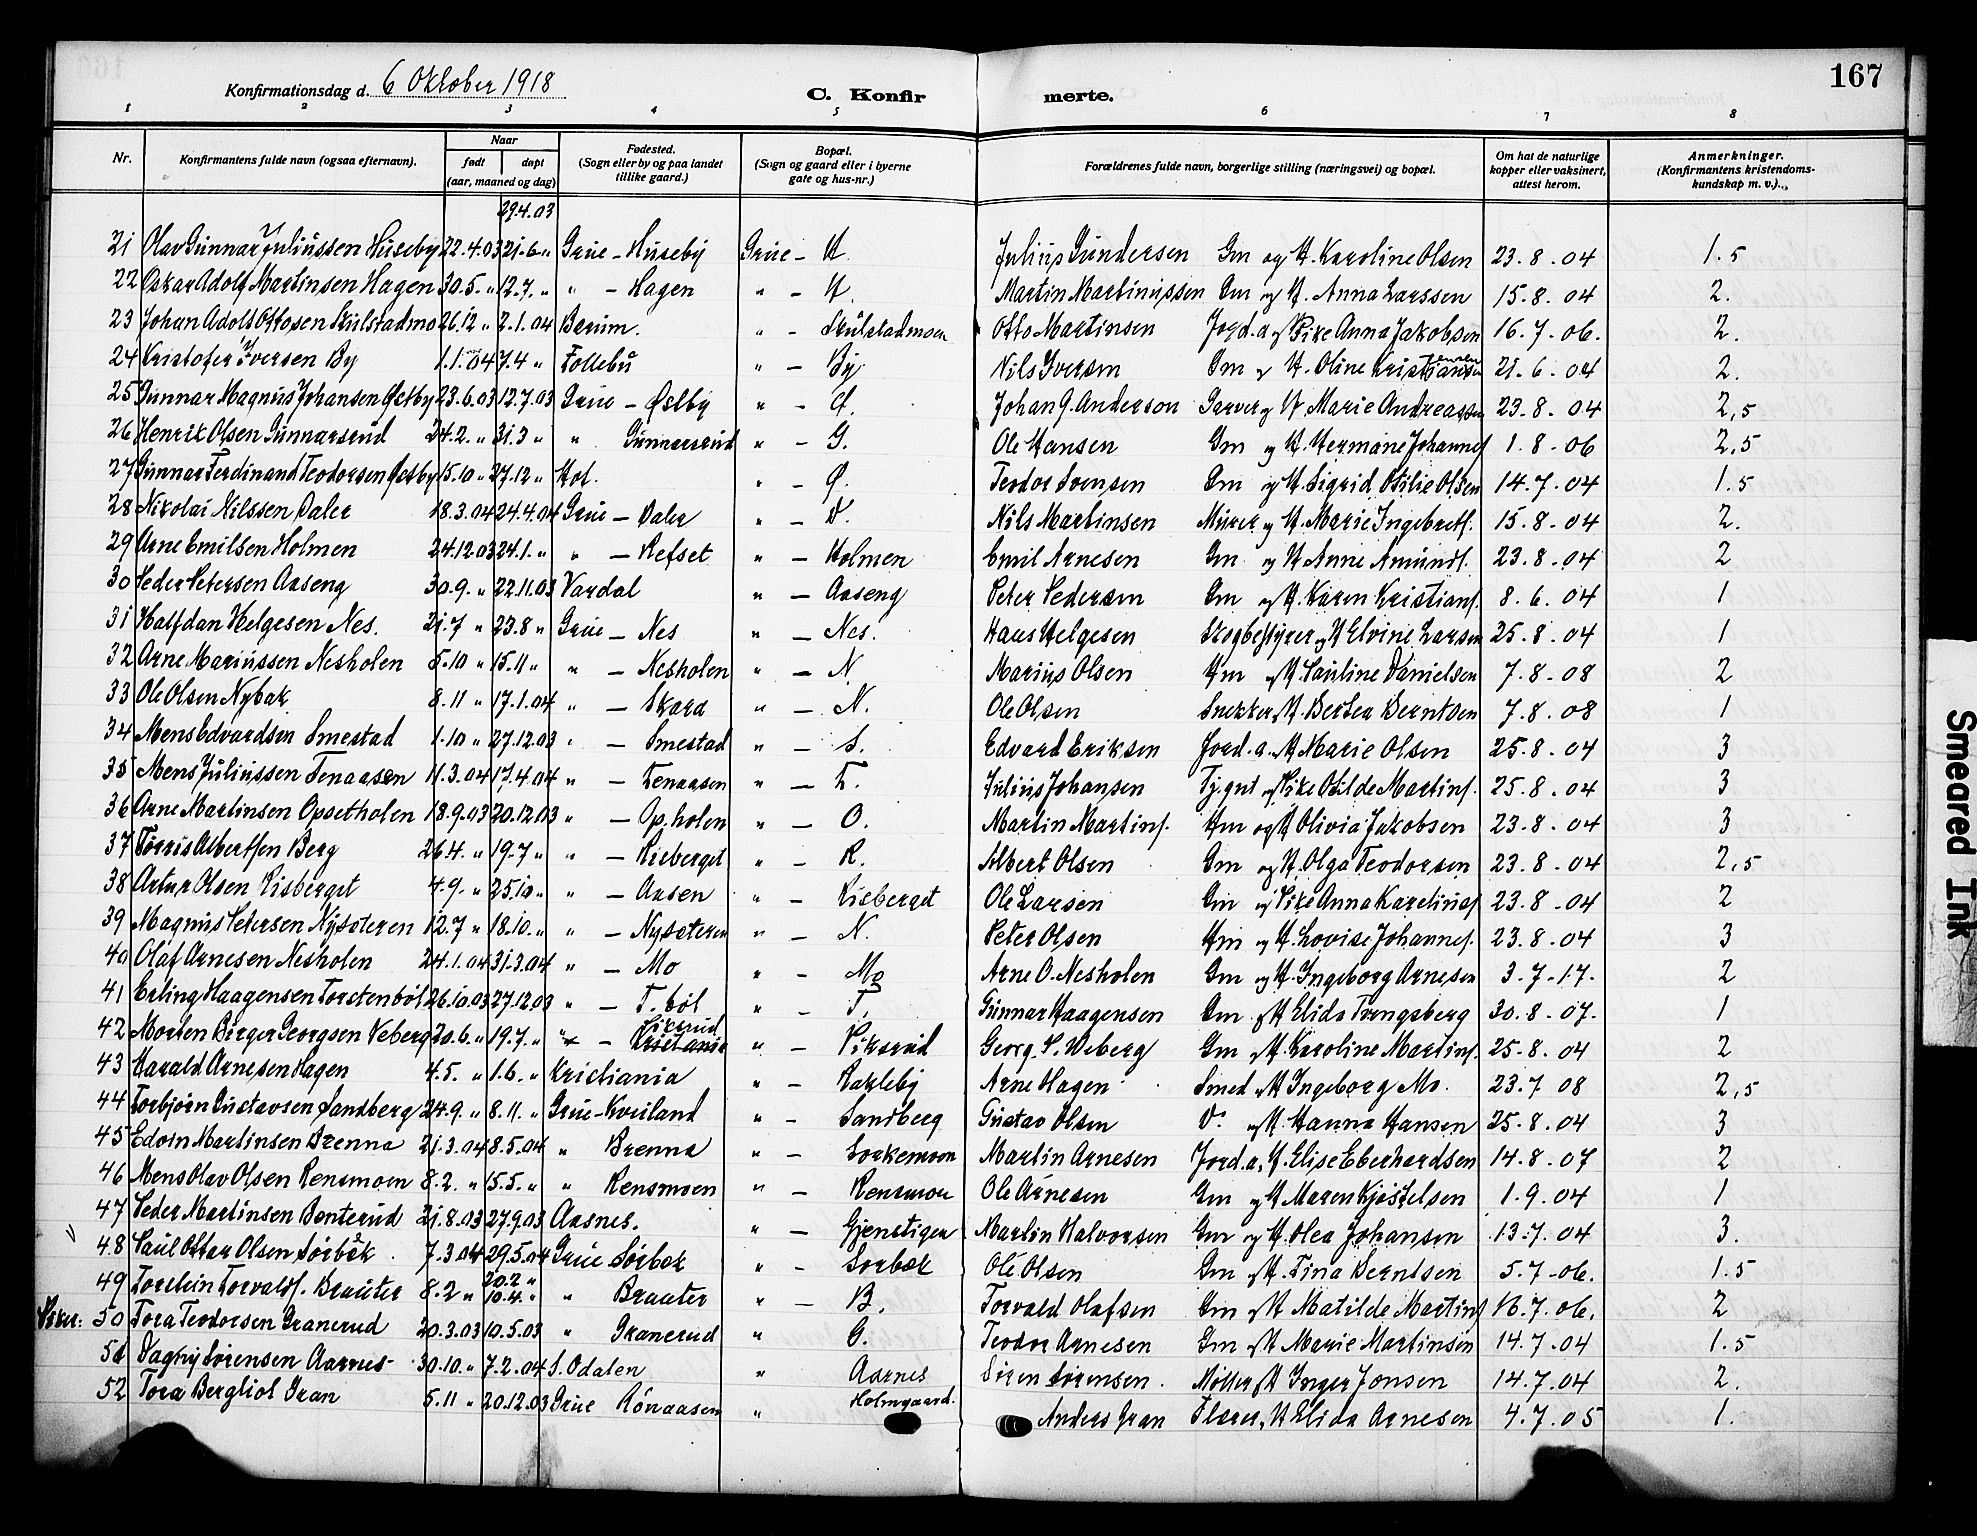 167
Konfirmationsdag d. 6 Oktober 1918
C. Konfirmerte.
1 2 3 4 5 6 7 8
Nr. Konfirmantens fulde navn (ogsaa efternavn). Naar født døpt (aar, maaned og dag) Fødested. (Sogn eller by og paa landet tillike gaard.) Bopæl. (Sogn og gaard eller i byerne gate og hus-nr.) Forældrenes fulde navn, borgerlige stilling (næringsvei) og bopæl. Om hat de naturlige kopper eller vaksinert, attest herom. Anmerkninger. (Konfirmantens kristendomskundskap m. v.)
29.4.03
21 Olav Gunnar Juliussen Huseby 22.4.03 21.6 " Grue - Huseby Grue - H. Julius Gundersen Gm og H. Karoline Olsen 23.8.04 1.5
22 Oskar Adolf Martinsen Hagen 30.5. " 12.7. " " - Hagen " - H. Martin Martinussen Gm og H. Anna Larssen 15.8.04 2.
23 Johan Adolf Ottosen Skulstadmo 26.12 " 2.1.04 Berum. " - Skulstadmoen Otto Martinsen Jord.a. og Pike Anna Jakobsen 16.7.06. 2.
24 Kristofer Iversen By 1.1.04 7.4 " Follebu " - By Nils Iversen Gm og H. Oline Kristiansen 21.6.04 2.
25 Gunnar Magnus Johansen Østby 23.6.03 12.7.03 Grue - Østby " - Ø. Johan G. Anderson Garver og H Marie Andreassen 23.8.04 2,5
26 Henrik Olsen Gunnarsrud 24.2. " 31.3 " " Gunnarsrud " - G. Ole Hansen Gm og H. Hermane Johannes. 1.8.06 2,5
27 Gunnar Ferdinand Teodorsen Østby 15.10 " 27.12 " Hof. " - Ø. Teodor Svensen Gm og H. Sigrid Otilie Olsen 14.7.04 1.5
28 Nikolai Nilssen Daler 18.3.04 24.4.04 Grue - Daler " - D. Nils Martinsen Murer og H. Marie Ingebretf. 15.8.04 2.
29 Arne Emilsen Holmen 24.12.03 24.1. " " - Refset " - Holmen Emil Arnesen Gm og H Anne Amundf. 23.8.04 2
30 Peder Petersen Aaseng 30.9. " 22.11.03 Vardal " - Aaseng Peter Pedersen Gm og H. Karen Kristianf. 8.6.04 1
31 Halfdan Helgesen Nes. 21.7 " 23.8 " Grue - Nes " - Nes. Hans Helgesen Skogbestyrer og H Elvine Larsen 25.8.04 1
32 Arne Mariussen Nesholen 5.10 " 15.11 " " - Nesholen " - N Marius Olsen Hm og H. Pauline Danielsen 7.8.08 2
33 Ole Olsen Nybak 8.11 " 17.1.04 " - Skara " - N. Ole Olsen Snekker, H. Bertea Berntsen 7.8.08 1
34 Mens Edvardsen Smestad 1.10 " 27.12.03 " - Smestad " - S. Edvard Eriksen Jord.a. H Marie Olsen 25.8.04 3
35 Mens Juliussen Tenaasen 11.3.04 17.4.04 " - Tenaasen " - T. Julius Johansen Tj.gut og Pike Otilde Martinf. 25.8.04 3
36 Arne Martinsen Opsetholen 18.9.03 20.12.03 " - Op.holen " - O. Martin Martinf. Hm og H Olivia Jakobsen 23.8.04 3
37 Torris Albertsen Berg 26.4. " 19.7 " " - Risberget " - R. Albert Olsen Gm og H. Olga Teodorsen 23.8.04 2,5
38 Artur Olsen Risberget 4.9. " 25.10 " " - Aasen " - Risberget Ole Larsen Gm og Pike Anna Karelius. 23.8.04 2
39 Magnus Petersen Nysæteren 12.7 " 18.10. " " - Nysæteren " - N. Peter Olsen Hm og H. Lovise Johannef. 23.8.04 3
40 Olaf Arnesen Nesholen 24.1.04 31.3.04 " - Mo " - Mo Arne O. Nesholen Gm og H. Ingeborg Arnesen 3.7.17. 2
41 Erling Haagensen Torstenbøl 26.10.03 27.12.03 " - T.bøl " - T. Gunnar Haagensen Gm og H Elida Tvengsberg 30.8.07. 1
42 Morten Birger Georgsen Veberg 20.6. " 19.7. " " - Piksrud Kristiania " - Piksrud Georg. P. Weberg Gm og H. Karoline Martinf. 25.8.04 2
43 Harald Arnesen Hagen 4.5. " 1.6. " Kristiania " - Kaleby Arne Hagen Smed og H Ingeborg Mo. 23.7 08 2,5
44 Torbjørn Gustavsen Sandberg 24.9. " 8.11. " Grue - Kveiland " - Sandberg Gustav Olsen D: og H. Hanna Hansen 25.8.04 3
45 Edvin Martinsen Brenna 21.3.04 8.5.04 " Brenna " - Sorkemoen Martin Arnesen Jord.a, H. Elise Eberhardsen 14.8.07 2
46 Mens Olav Olsen Rensmoen 8.2. " 15.5. " " Rensmoen " - Rensmoen Ole Arnesen Gm og H Maren Kjøstelsen 1.9.04 1
47 Peder Martinsen Bonterud 21.8.03 27.9.03 Aasnes. " - Gjenstigen Martin Halvorsen Gm og H. Olea Johansen 13.7.04 3.
48 Paul Ottar Olsen Sørbæk 7.3.04 29.5.04 Grue Sørbæk " - Sorbæk Ole Olsen Gm og H. Tina Berntsen 5.7.06. 1.5
49 Torstein Torvaldf. Brauter 8.2 " 20.2 " 10.4. " " Brauter " - B. Torvald Olafsen Gm og H Matilde Martins 16.7.06. 2
Piker: 50 Tora Teodorsen Granerud 20.3.03 10.5.03 " Granerud " G. Teodor Arnesen Gm og H Marie Martinsen 14.7.04 1.5
51 Dagny Sørensen Aarnes 30.10. " 7.2.04 S. Odalen " Aarnes Søren Sørensen. Møller H Inger Jonsen 14.7.04 2.
52 Tora Bergliot Gran 5.11 " 20.12.03 Grue Rönaasen " Holmgaard. Anders Gran Lærer, H Elida Arnesen 4.7.05 1.
Smeared Ink